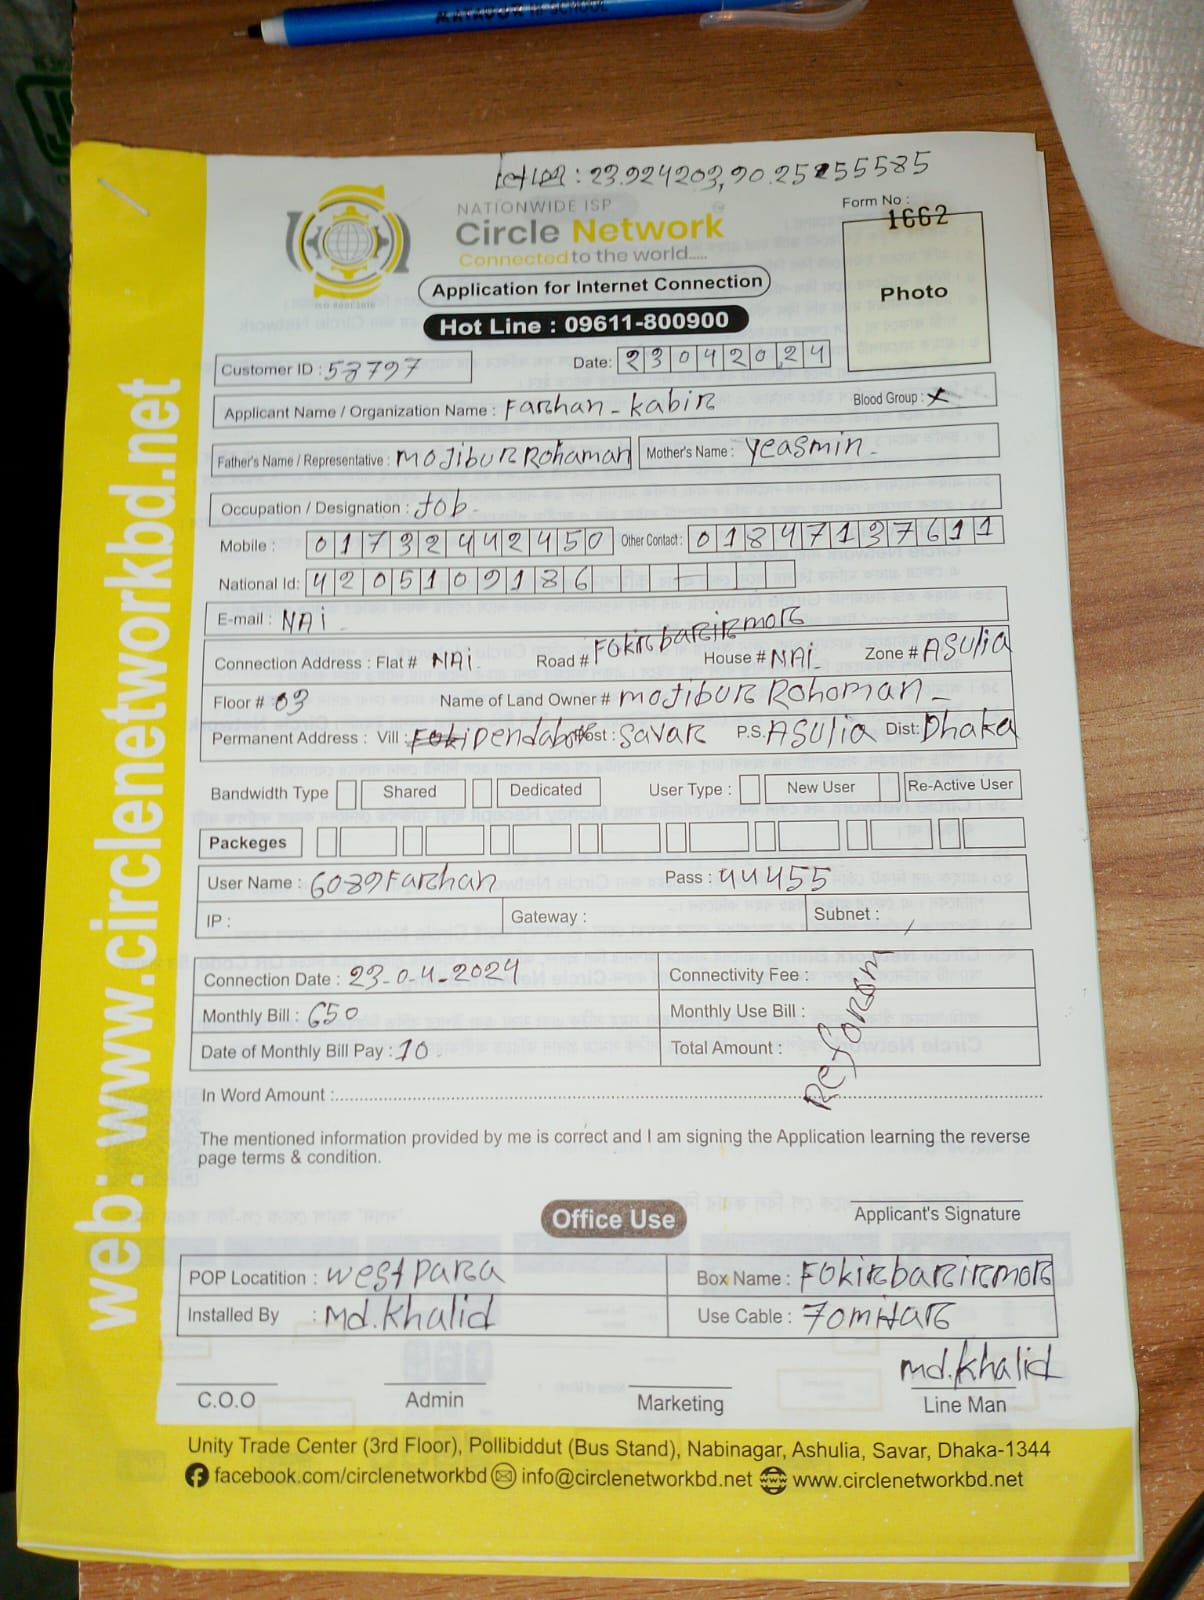 MATADOR HI-SCHOOL
: 23.924203,90.25255585
NATIONWIDE ISP
Circle Network
Connected to the world.....
ISO 9001:2015
Form No :
1662
Photo
Application for Internet Connection
Hot Line : 09611-800900
Customer ID : 53797
Date: 23042024
Applicant Name / Organization Name : Farhan - Kabir
Blood Group : X
Father's Name / Representative : Mojibur Rohaman
Mother's Name : Yeasmin -
Occupation / Designation : Job -
Mobile : 01732442450
Other Contact : 01847137611
National Id: 4205109186
E-mail : NAi
Connection Address : Flat # NAi Road # Fokirbarirmor House # NAi Zone # ASUlia
Floor # 03 Name of Land Owner # Mojibur Rohoman
Permanent Address : Vill : Dendabor Post : Savar P.S. ASUlia Dist: Dhaka
Bandwidth Type Shared Dedicated User Type : New User Re-Active User
Packeges
User Name : 6089Farhan Pass : 44455
IP : Gateway : Subnet :
Connection Date : 23-04-2024 Connectivity Fee :
Monthly Bill : 650 Monthly Use Bill :
Date of Monthly Bill Pay : 10 Total Amount :
Reform
In Word Amount :
The mentioned information provided by me is correct and I am signing the Application learning the reverse
page terms & condition.
Applicant's Signature
Office Use
POP Locatition : west para Box Name : Fokirbarirmor
Installed By : Md.Khalid Use Cable : 70mitar
md.khalid
C.O.O Admin Marketing Line Man
Unity Trade Center (3rd Floor), Pollibiddut (Bus Stand), Nabinagar, Ashulia, Savar, Dhaka-1344
facebook.com/circlenetworkbd info@circlenetworkbd.net www.circlenetworkbd.net
web: www.circlenetworkbd.net